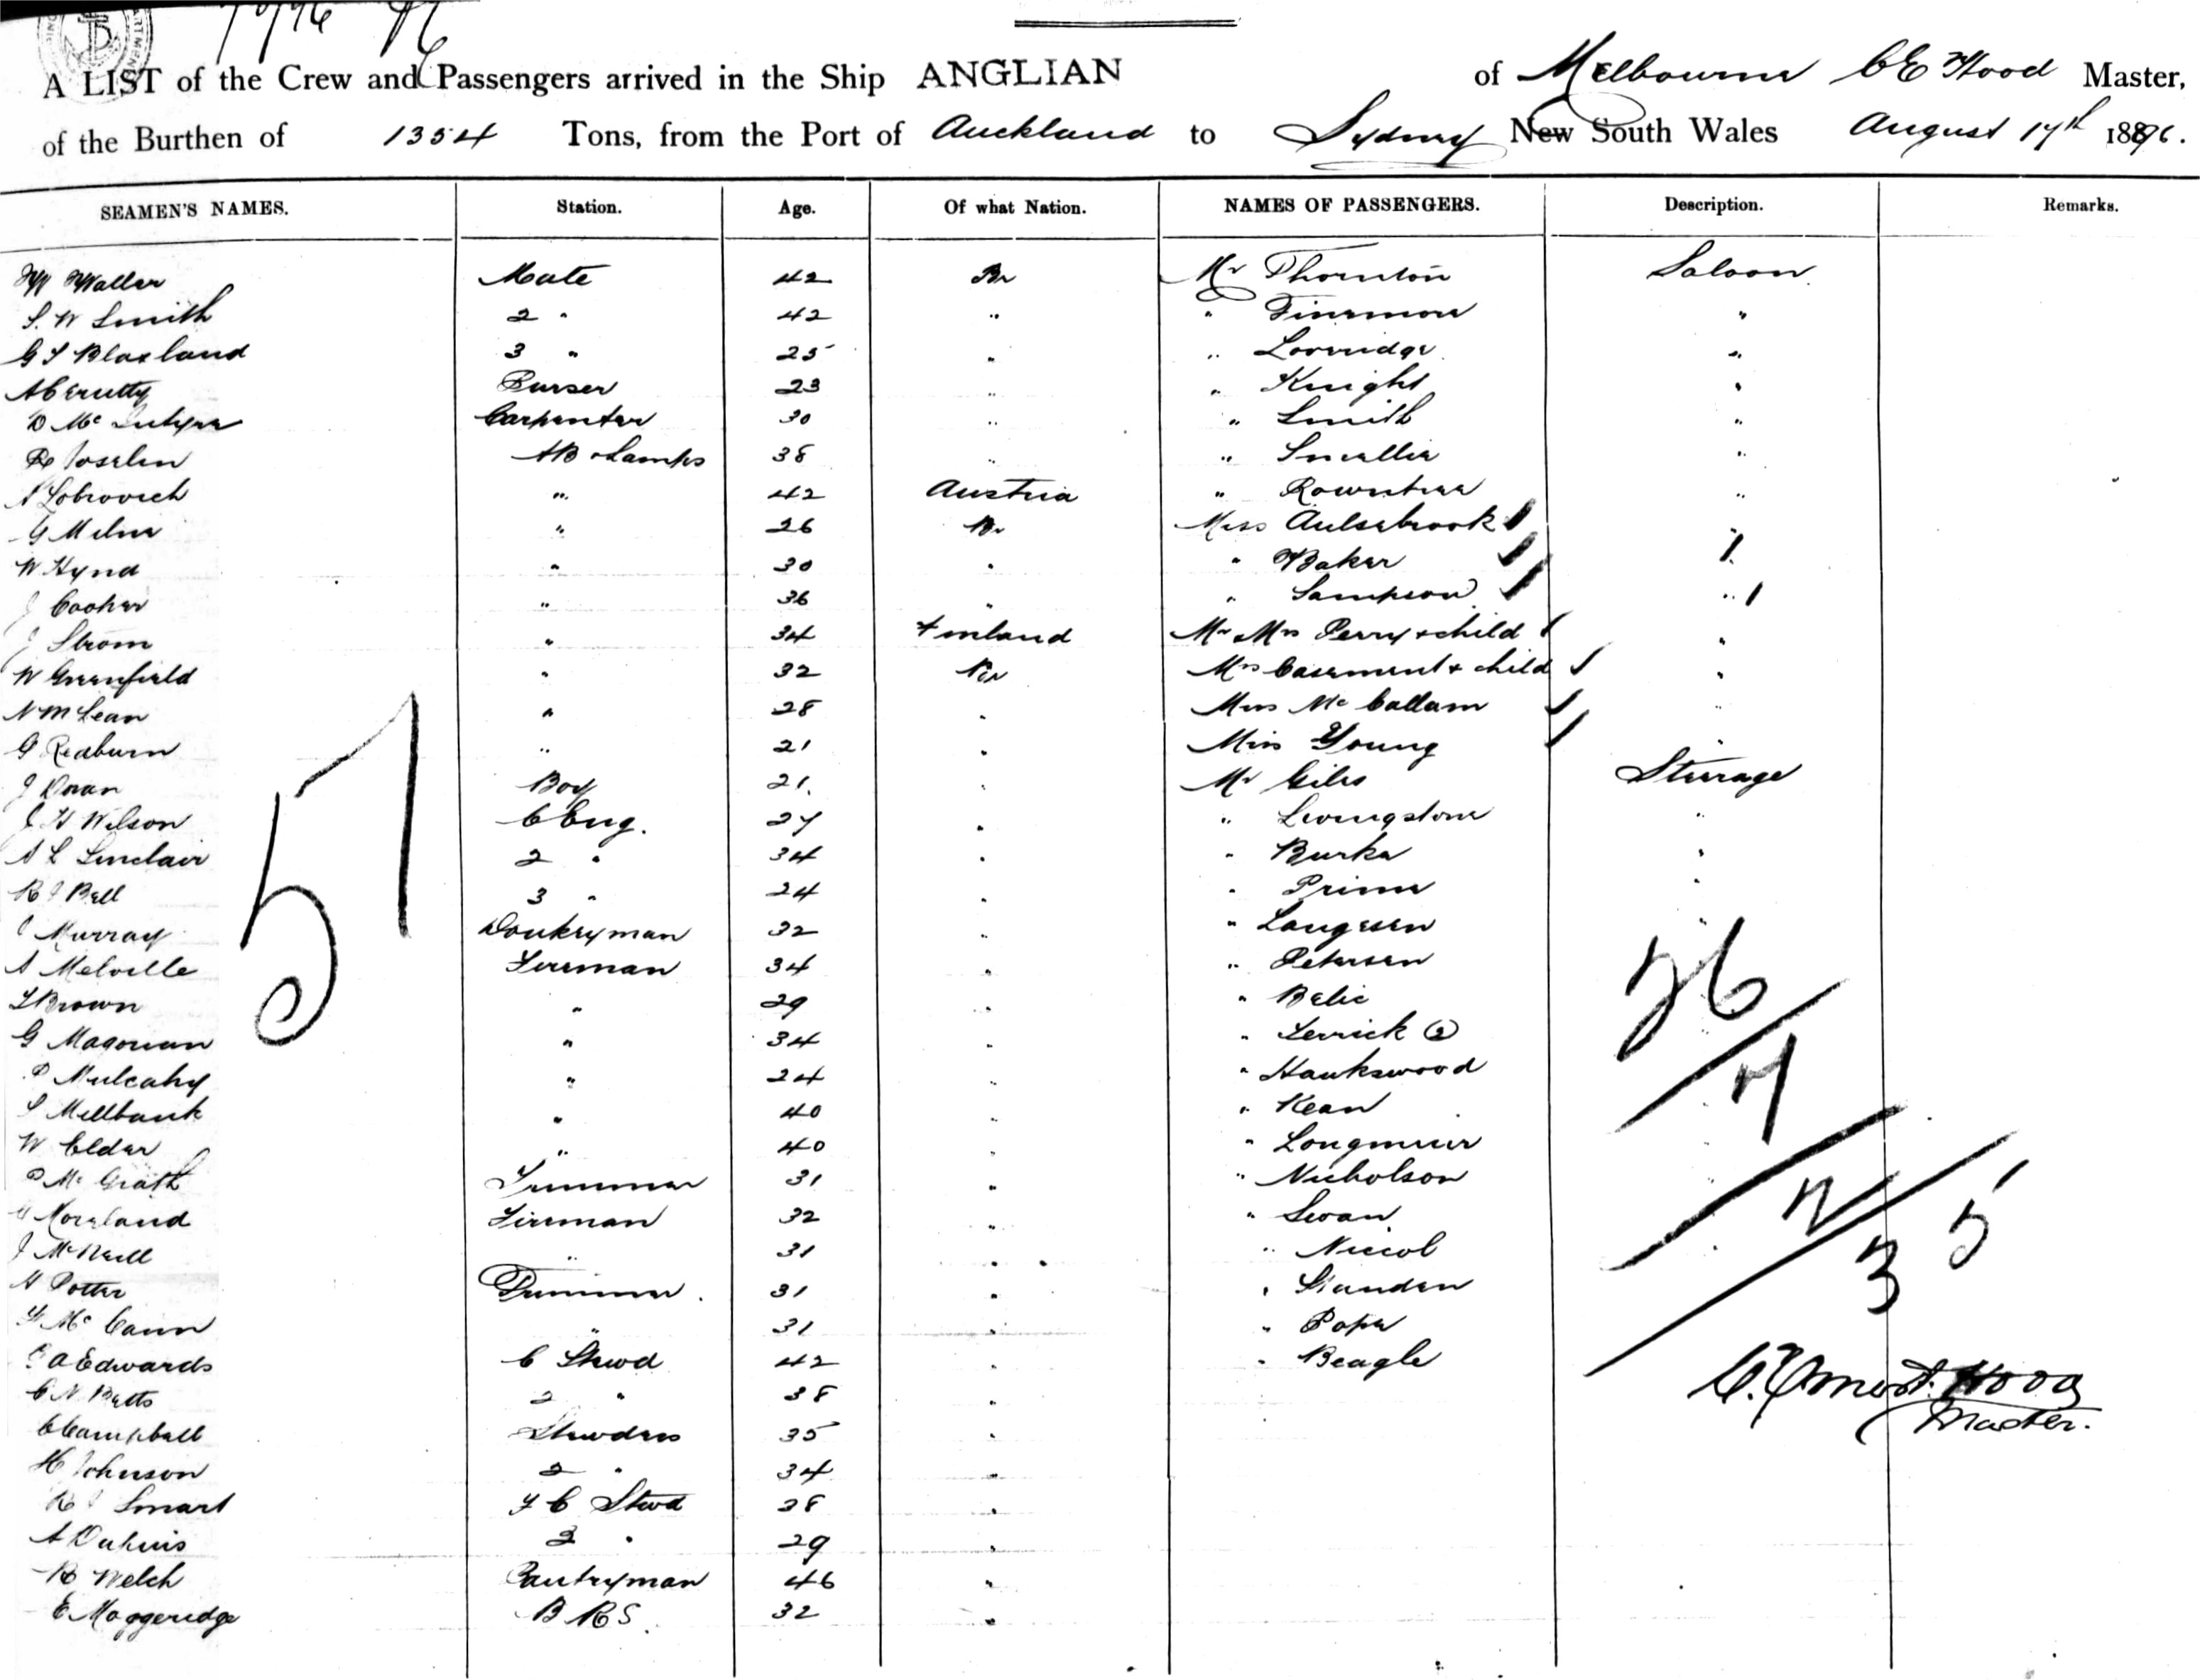 A LIST of the Crew and Passengers arrived in the Ship ANGLIAN of Melbourne C E Hood Master,
of the Burthen of 1354 Tons, from the Port of Auckland to Sydney New South Wales August 17th 1896.
SEAMEN'S NAMES. Station. Age. Of what Nation. NAMES OF PASSENGERS. Description. Remarks.
W Waller Mate 42 Br Mr Thornton Saloon
S. W Smith 2 " 42 " " Finemore "
G S Blaxland 3 " 25 " " Loveridge "
A Cerutty Purser 23 " " Knight "
D Mc Intyre Carpenter 30 " " Smith "
R Joselin AB & Lamps 38 " " Smellie "
A Lobrovich " 42 Austria " Rowntree "
G Milne " 26 Br Miss Aulsebrook
W Hynd " 30 " " Baker "
J Cooker " 36 " " Sampson "
J Strom " 34 Finland Mr Mrs Perry & child "
W Greenfield " 32 Br Mrs Casement & child "
N McLean " 28 " Miss Mc Callam "
G Redburn " 21 " Miss Young "
J Doran Boy 21 " Mr Giles Steerage
J H Wilson C Eng. 27 " " Livingstone "
A L Sinclair 2 " 34 " " Burke "
R J Bell 3 " 24 " " Prime "
J Murray Donkeyman 32 " " Langesen "
A Melville Fireman 34 " " Petersen
51
26
S Brown " 29 " " Belic
G Magowan " 34 " " Lerrick (2)
P Mulcahy " 24 " " Hawkswood
7
S Millbank " 40 " " Kean
W Elder " 40 " " Longmuir
P Mc Grath Trimmer 31 " " Nicholson
2 5
G Moreland Fireman 32 " " Swan
J McNeill " 31 " " Niccol
3
H Potter Trimmer. 31 " " Standen
Mc Cann " 31 " " Pope
E A Edwards C Stewd 42 " " Beagle
C N Betts 2 " 38 " C. Ernest Hood
C Campbell Stewdess 35 " Master.
H Johnson 2 " 34 "
R J Smart F C Stwd 28 "
A Duhuis 2 " 29 "
R Welch Pantryman 46 "
E Moggeridge B R S. 32 "